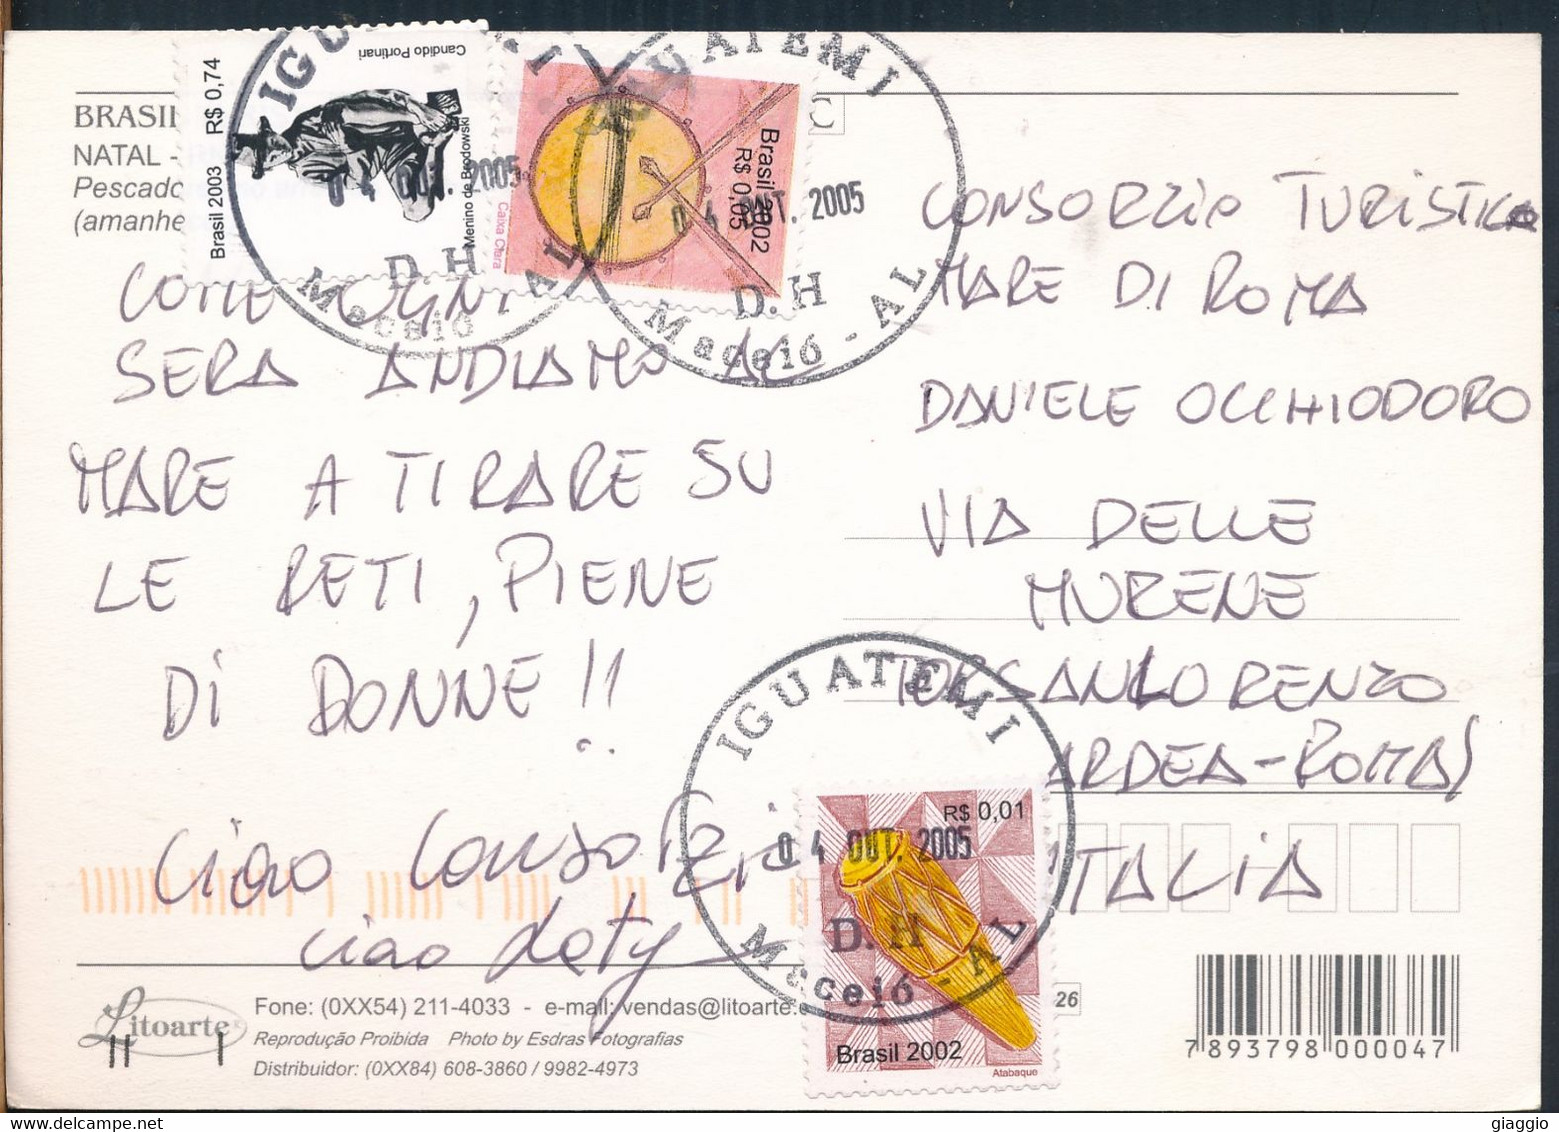 BRASIL
NATAL -
Pescado
(amanhe
Brasil 2003 R$ 0,74
Candido Portinari
Menino de Brodowski
Brasil 2002
R$ 0,05
Caixa Clara
IGUATEMI
04 OUT. 2005
D.H
Maceió - AL
IGUATEMI
04 OUT. 2005
D.H
Maceió - AL
COME OGNI
SERA ANDIAMO AL
MARE A TIRARE SU
LE RETI, PIENE
DI DONNE!!
Ciao Consorzio
ciao
CONSORZIO TURISTICO
MARE DI ROMA
DANIELE OCCHIODORO
VIA DELLE
MURENE
TORSANLORENZO
ARDEA-ROMA)
ITALIA
IGUATEMI
04 OUT. 2005
D.H
Maceió - AL
R$ 0,01
Brasil 2002
Atabaque
Litoarte
Fone: (0XX54) 211-4033 - e-mail: vendas@litoarte.
Reprodução Proibida Photo by Esdras Fotografias
Distribuidor: (0XX84) 608-3860 / 9982-4973
26
7 893798 000047
giaggio